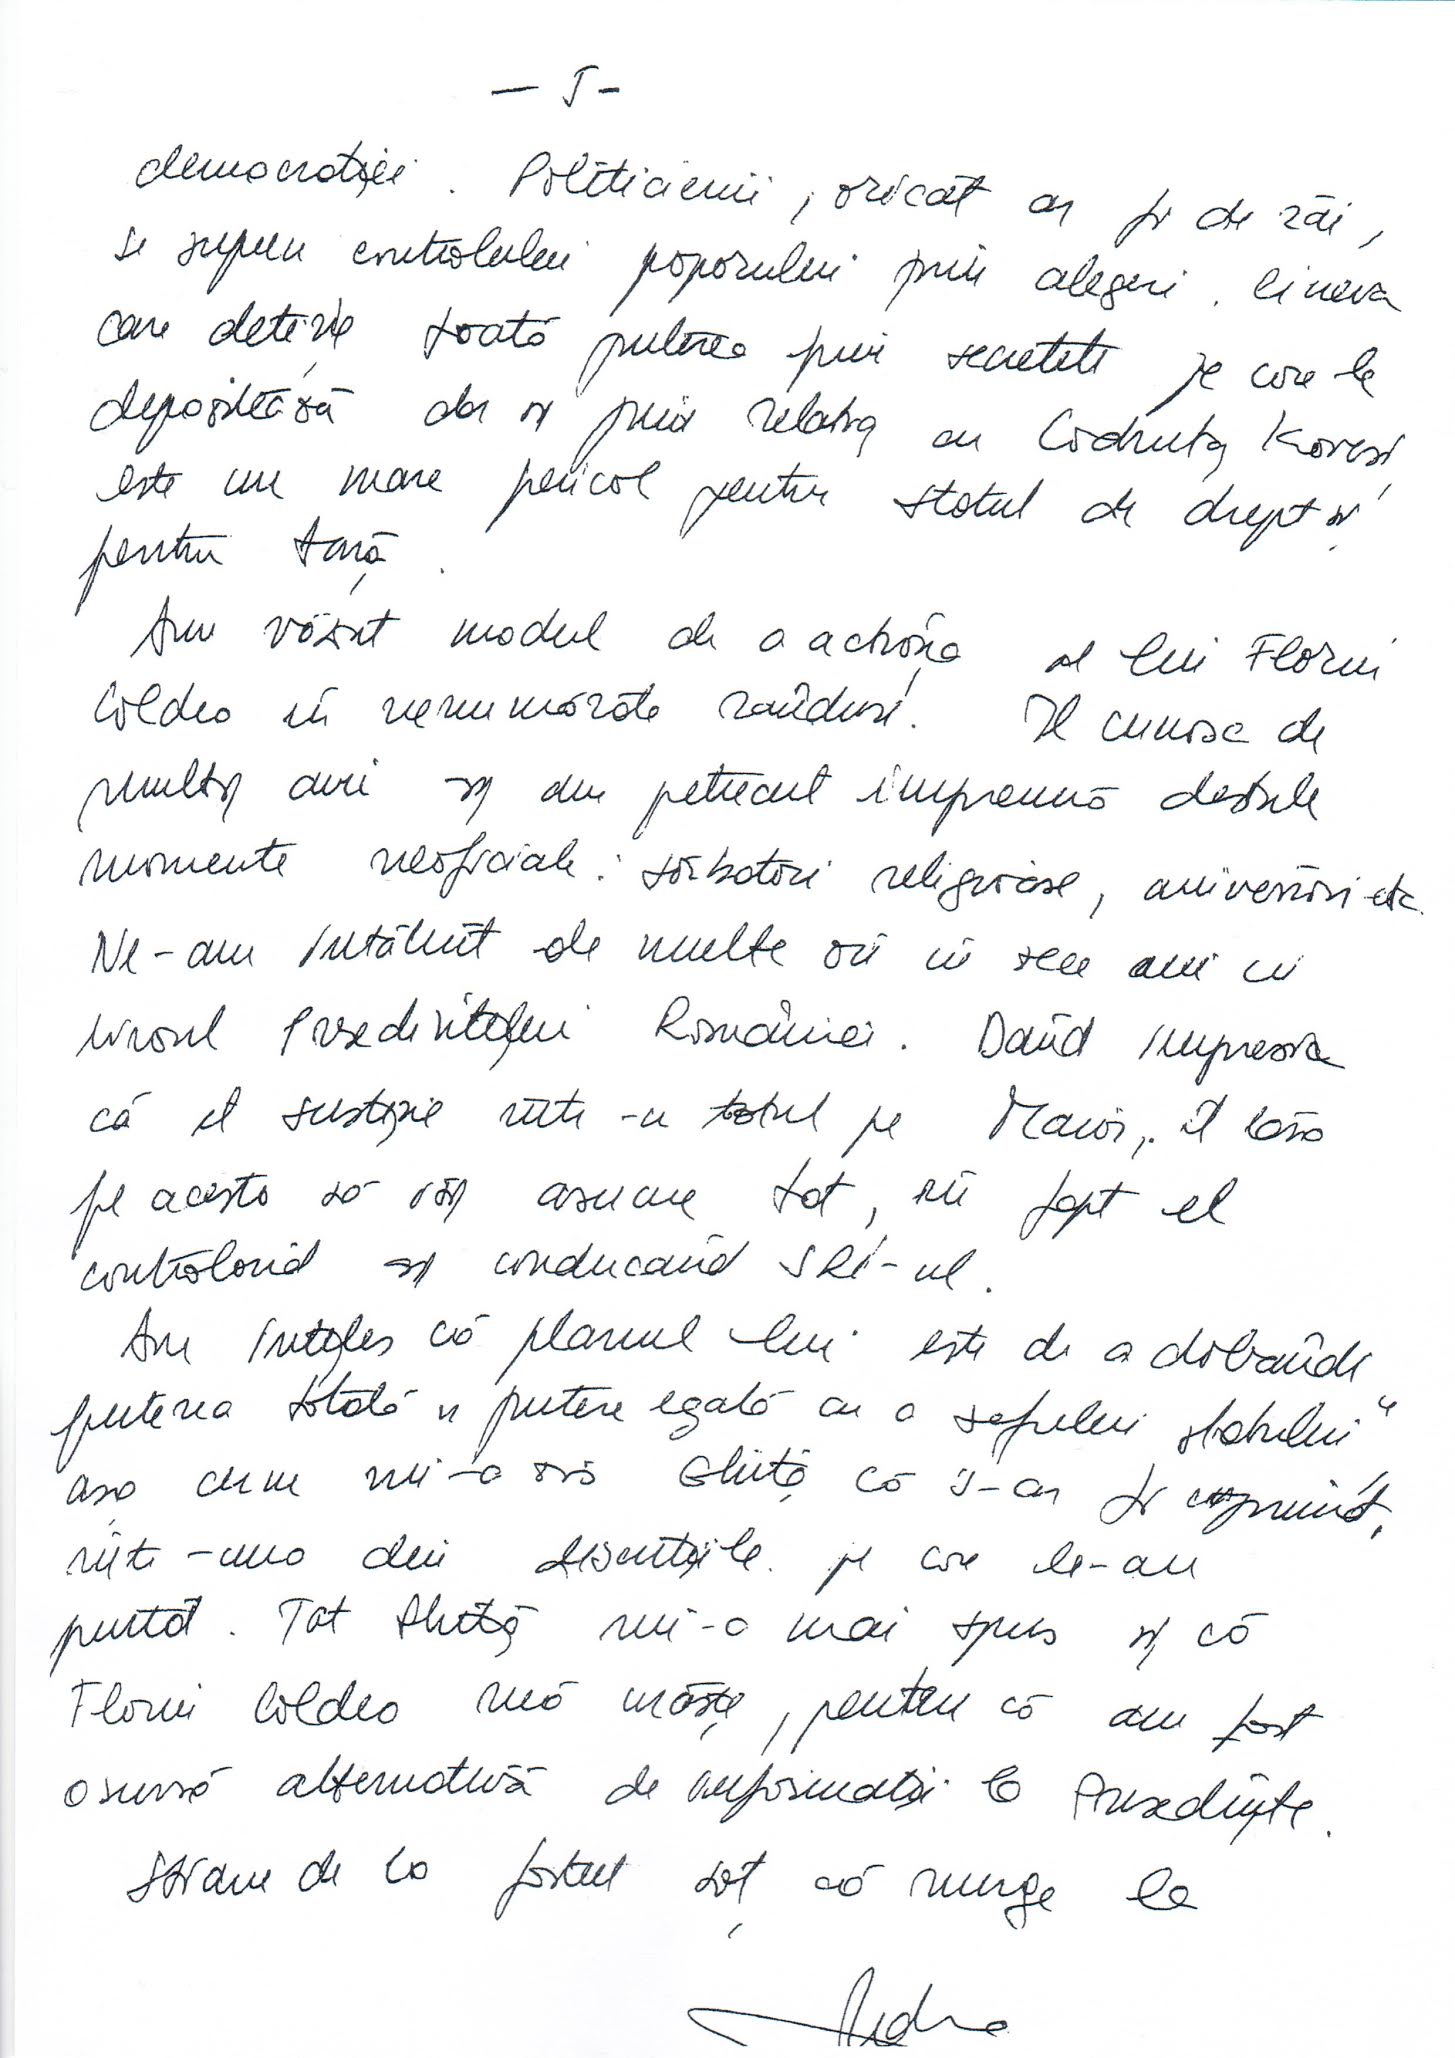 - 5 -
democrației. Politicienii, oricât ar fi de răi,
se supun controlului poporului prin alegeri. Cineva
care deține toată puterea prin secretele pe care le
depozitează dar și prin relația cu Codruța Kovesi,
este un mare pericol pentru statul de drept și
pentru țară.
Am văzut modul de a acționa al lui Florin
Coldea în nenumărate rânduri. Il cunosc de
mulți ani și am petrecut împreună destule
momente neoficiale: sărbatori religioase, aniversări etc.
Ne-am întâlnit de multe ori în zece ani în
biroul Președintelui României. Dând impresia
că il susține întru-u totul pe Maior, îl lăsa
pe acesta să își asume tot, în fapt el
controlând și conducând SRI-ul.
Am înțeles că planul lui este de a dobândi
puterea totală „putere egală cu a șefului statului"
așa cum mi-a zis Ghiță că s-ar fi exprimat,
într-una din discuțiile pe care le-au
purtat. Tot Ghiță mi-a mai spus și că
Florin Coldea mă urăște, pentru că am fost
o sursă alternativă de informații la Președinte.
Știam de la fostul soț că merge la